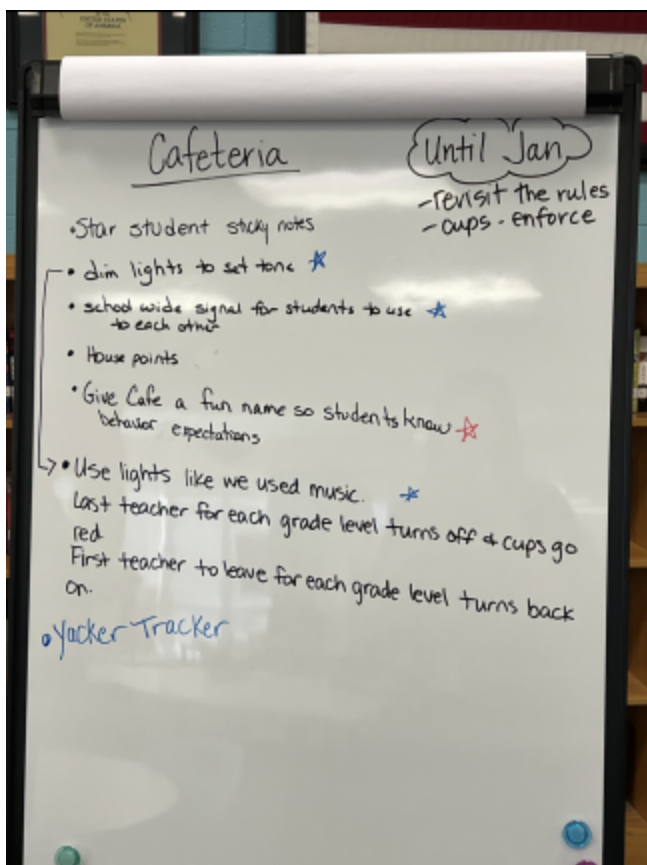 UNITED STATES
OF AMERICA
Cafeteria
Until Jan
-revisit the rules
-cups - enforce
•Star student sticky notes
• dim lights to set tone ☆
• school wide signal for students to use ☆
to each other
• House points
• Give Cafe a fun name so students know ☆
behavior expectations
• Use lights like we used music. ☆
Last teacher for each grade level turns off & cups go
red
First teacher to leave for each grade level turns back
on.
• Yacker Tracker